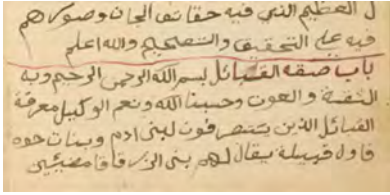 ل العظيم الذي فيه حقائق الجان وصورهم
فيه علي التحقيق والتصحيح والله اعلم
باب صفة القبائل بسم الله الرحمن الرحيم وبه
الثقة والعون وحسبنا الله ونعم الوكيل معرفة
القبائل الذين يتصرفون لبني ادم وبنات حوه
فاول قبيلة يقال لهم بني